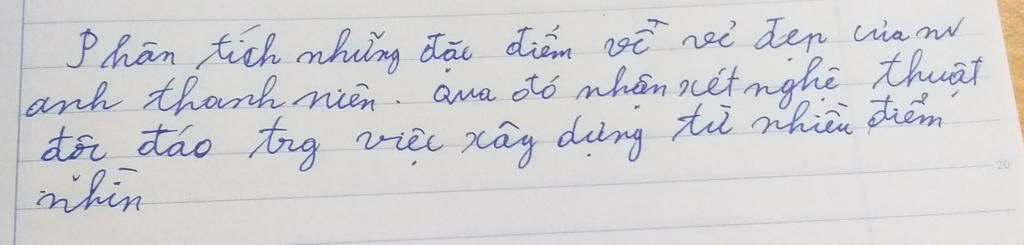 Phân tích những đặc điểm về vẻ đẹp của nv
anh thanh niên. Qua đó nhận xét nghệ thuật
độc đáo trg việc xây dựng từ nhiều điểm
nhìn
20